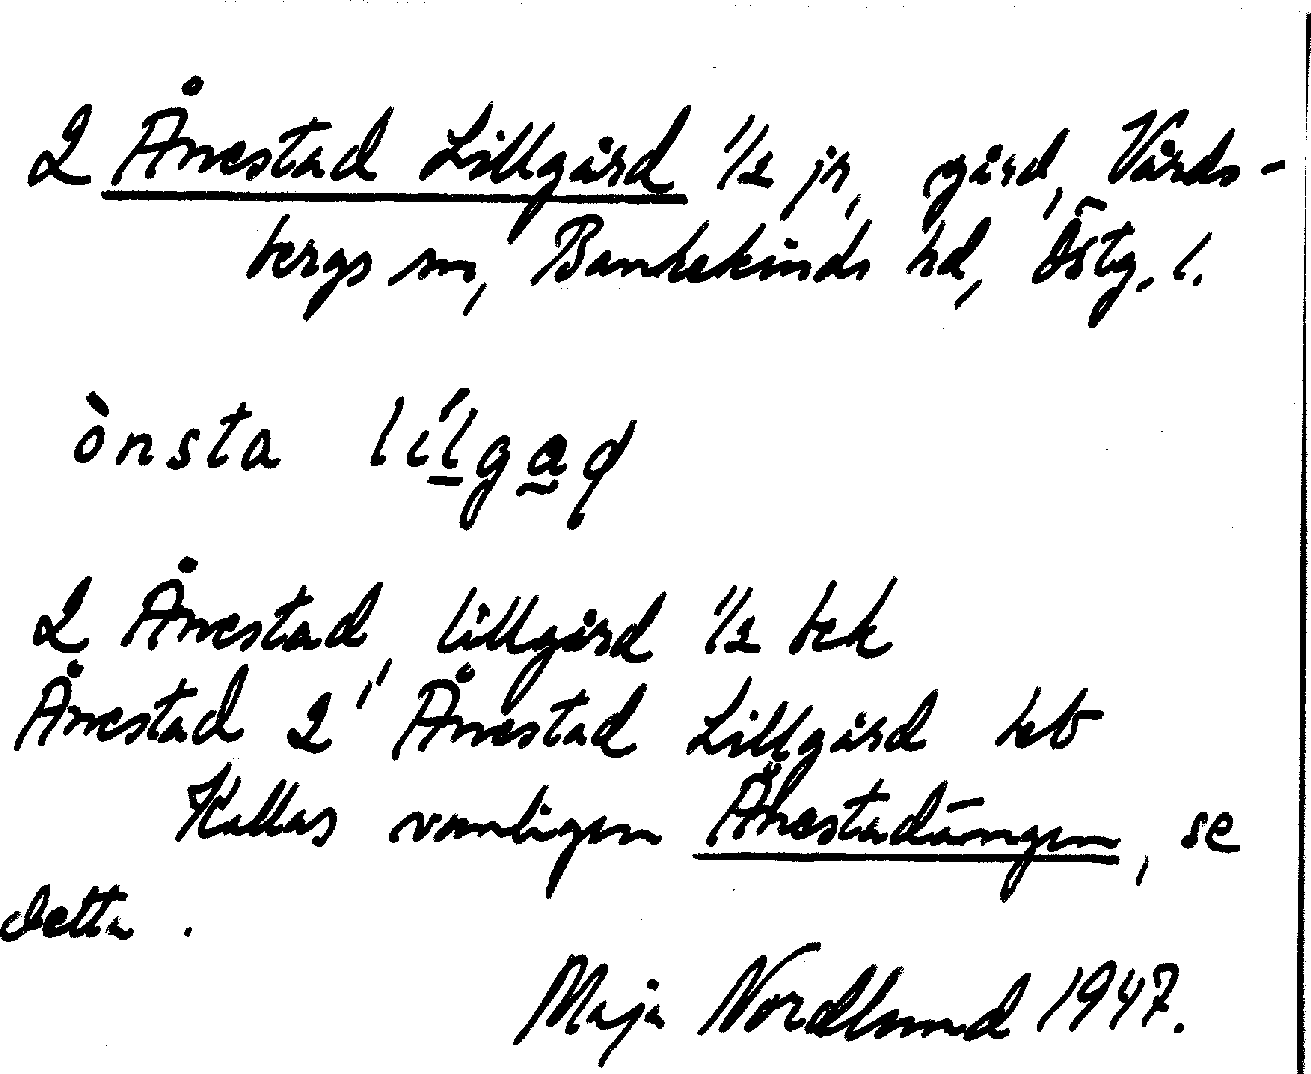 2 Ånestad Lillgård 1/2 jr, gård, Vårds-
bergs sn, Bankekinds hd, Östg. l.
ònsta lílgaɖ
2 Ånestad, lillgård 1/2 tek
Ånestad 2, Ånestad Lillgård
Kallas vanligen Ånestadängen, se
detta.
Maja Nordlund 1947.